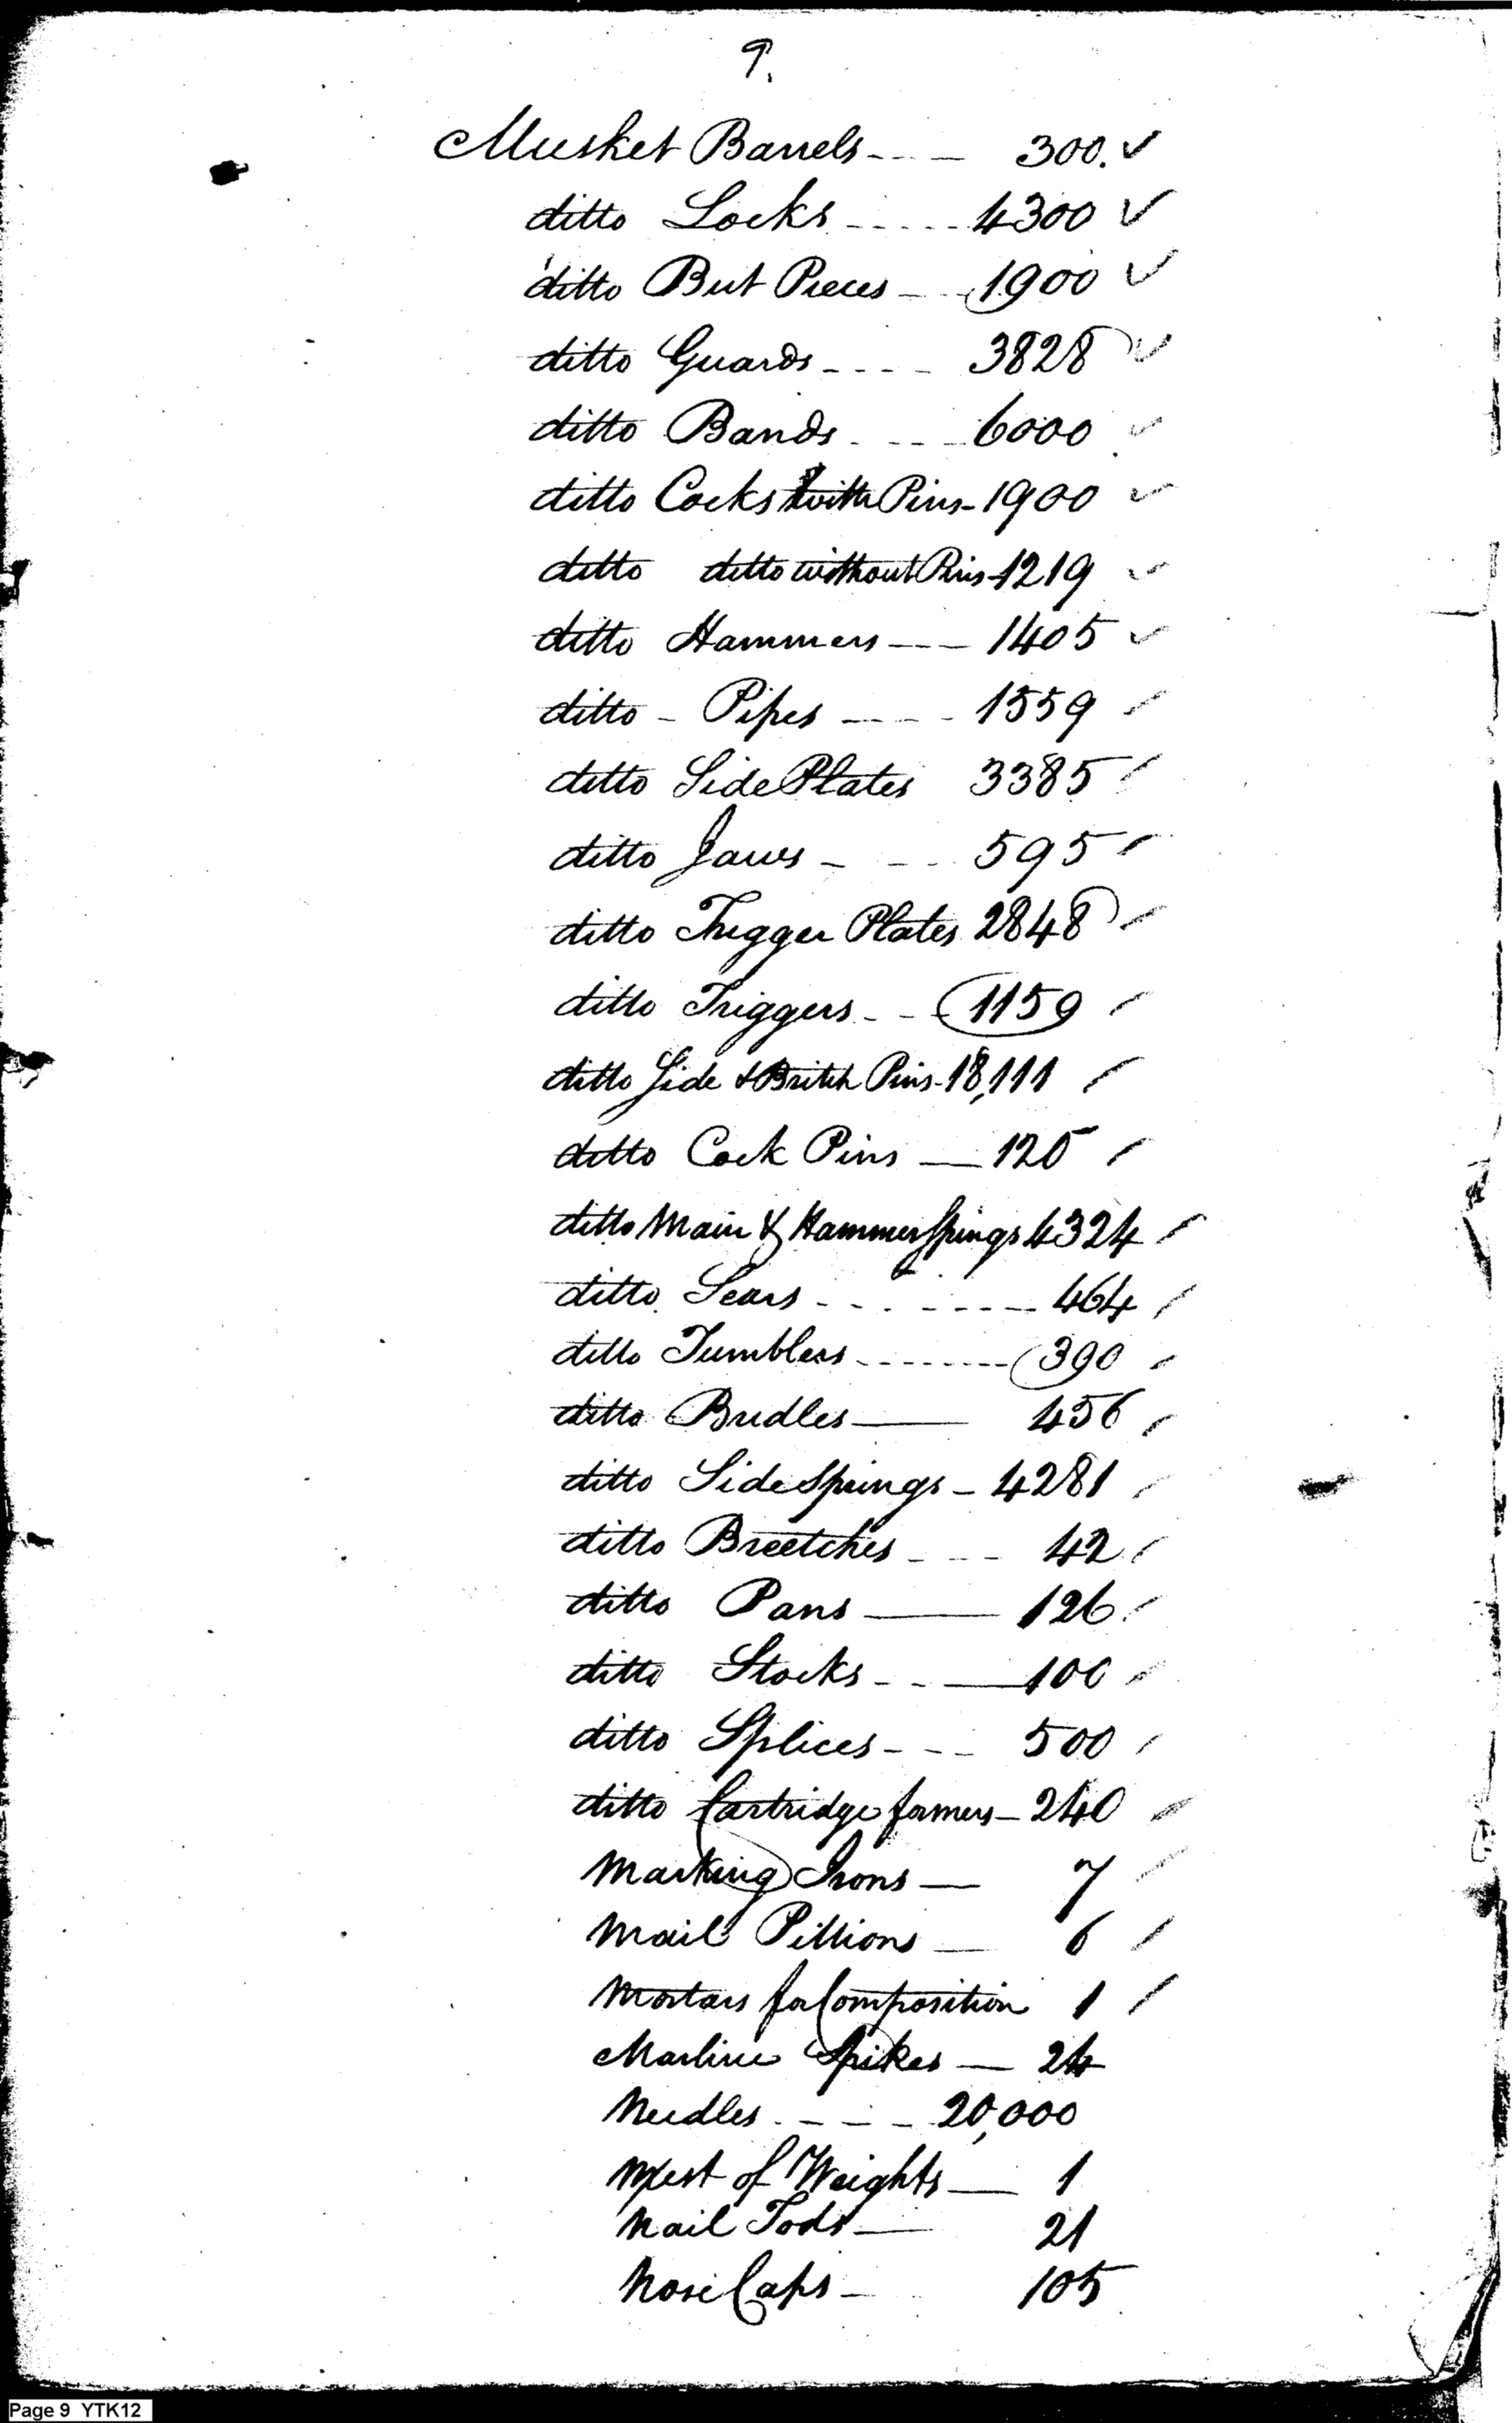 9.
Musket Barrels - - - 300. ✓
ditto Locks - - - - - 4300 ✓
ditto But Pieces - - - 1900 ✓
ditto Guards - - - - 3828 ✓
ditto Bands - - - - 6000 ✓
ditto Cocks with Pins - 1900 ✓
ditto ditto without Pins 1219 ✓
ditto Hammers - - - 1405 ✓
ditto - Pipes - - - - 1559 ✓
ditto Side Plates 3385 ✓
ditto Jaws - - - 595 ✓
ditto Trigger Plates 2848 ✓
ditto Triggers - - - 1159 ✓
ditto Side & Britch Pins - 18,111 ✓
ditto Cock Pins — 120 ✓
ditto Main & Hammer Springs 4324 ✓
ditto Sears - - - - - - - 464 ✓
ditto Tumblers - - - - - - - 390 ✓
ditto Bridles — 456 ✓
ditto Side Springs - 4281 ✓
ditto Breetches - - - 42 ✓
ditto Pans — 126 ✓
ditto Stocks - - — 100 ✓
ditto Splices - - - 500 ✓
ditto Cartridge formers - 240 ✓
Marking Irons — 7 ✓
Mail Pillions — 6 ✓
Mortars for Composition 1 ✓
Marline Spikes — 24
Needles - - - - 20,000
Nest of Weights — 1
Nail Tods — 21
Nose Caps - 105
Page 9 YTK12